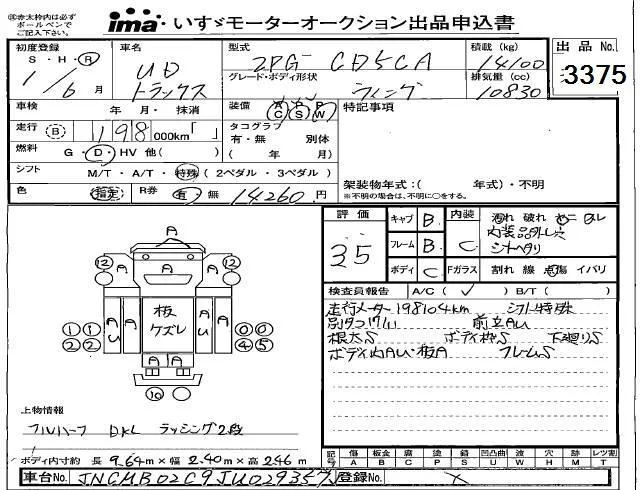 ◎赤太枠内は必ず
ボールペンで
ご記入下さい。
ima いすゞモーターオークション出品申込書
初度登録
S ・ H ・ R
1 / 6 月
車名
UD
トラックス
型式
2PG- CD5CA
グレード・ボディ形状
ウィング
積載 (kg)
14100
排気量 (cc)
10830
出品 No.
3375
車検 年 ・ 月 ・ 抹消
装備 A/C P/S P/W
特記事項
走行 B 198 000km「 」
タコグラフ
有 ・ 無 別体
( 年 月)
燃料 G ・ D ・ HV 他 ( )
シフト M/T ・ A/T ・ 特殊 ( 2ペダル ・ 3ペダル )
色 指定 R券 有 ・ 無 14260 円
架装物年式：( 年式) ・ 不明
※不明の場合は、不明に○をする。
評価
3.5
キャブ B
フレーム B
ボディ C
内装 C
Fガラス
濡れ 破れ ヤニ
内装品外し穴
シートヘタリ
割れ 線 点傷 イバリ
検査員報告 A/C ( ✓ ) B/T ( )
走行メーター 198104km シフト特殊
前立AU
根太S ボディ枠S 下廻りS
ボディ内AU・板A フレームS
A
12 A A A 12
A
A A 板
ケズレ A
U A
1 1 0 0
2 2 4 5
A A
10
上物情報
フルハーフ DKL ラッシング2段
ボディ内寸約 長 9.64 m × 幅 2.40 m × 高 2.46 m
記号 傷 板金 腐 塗 錆 凹凸曲 波 穴 目 レツ割
A B C P S U W H M T
車台No. JNCMB02C9JU029357
登録No. X